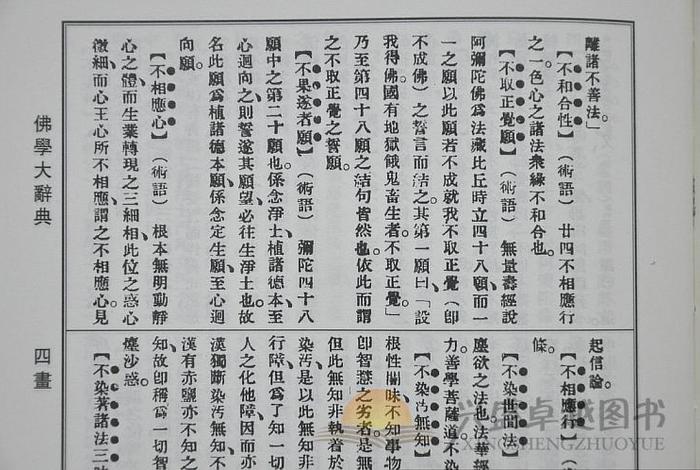 離諸不善法。」
【不和合性】（術語）廿四不相應行
之一。色心之諸法衆緣不和合也。
【不取正覺願】（術語）無量壽經說
阿彌陀佛爲法藏比丘時立四十八願而一
一之願以此願若不成就我不取正覺（卽
不成佛）之誓言而結之其第一願曰「設
我得佛國有地獄餓鬼畜生者不取正覺」
乃至第四十八願之結句皆然也依此而謂
之不取正覺之誓願。
【不果遂者願】（術語）彌陀四十八
願中之第二十願也係念淨土植諸德本至
心迴向之則誓遂其願望必往生淨土也故
名此願爲植諸德本願係念定生願至心迴
向願。
【不相應心】（術語）根本無明動靜
心之體而生業轉現之三細相此位之惑心
微細而心王心所不相應謂之不相應心見
起信論。
【不相應行】（
條。
【不染世間法】（
塵欲之法也法華經
力善學菩薩道不染
【不染汚無知】
根性闇昧不知事物
卽智慧之劣者是無
但此無知非執着於
染汚是以此無知非
行障但爲了知一切
人之化他障因而亦
漢獨斷染汚無知不
漢有亦鹽亦不知之
知故卽稱爲一切智
塵沙惑。
【不染著諸法三昧
佛學大辭典
四畫
兴星卓越图书
XINGSHENGZHUOYUE